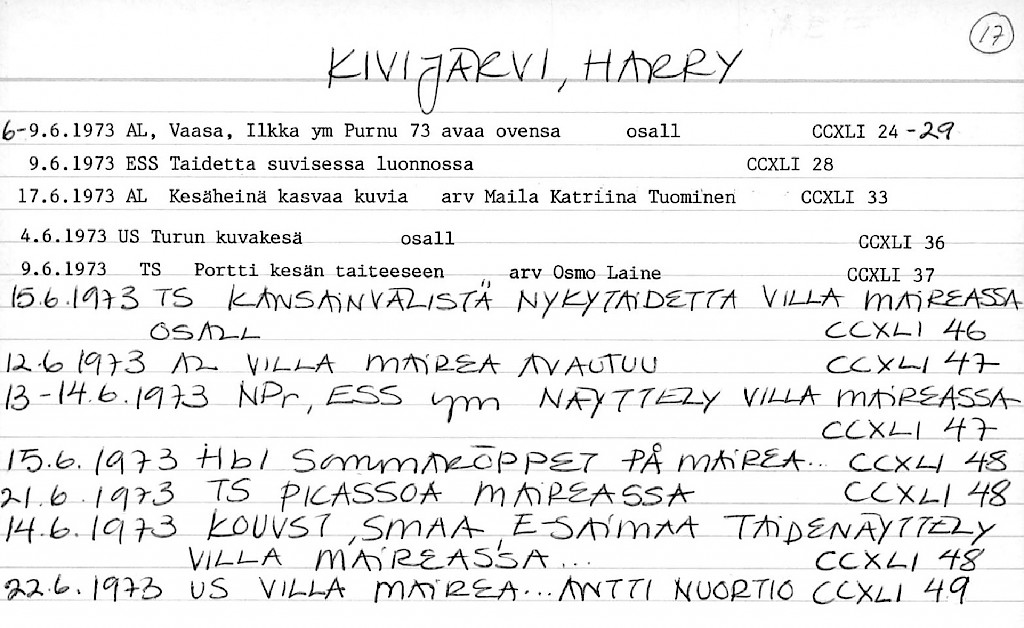 17
KIVIJÄRVI, HARRY
6-9.6.1973 AL, Vaasa, Ilkka ym Purnu 73 avaa ovensa osall CCXLI 24-29
9.6.1973 ESS Taidetta suvisessa luonnossa CCXLI 28
17.6.1973 AL Kesäheinä kasvaa kuvia arv Maila Katriina Tuominen CCXLI 33
4.6.1973 US Turun kuvakesä osall CCXLI 36
9.6.1973 TS Portti kesän taiteeseen arv Osmo Laine CCXLI 37
15.6.1973 TS KANSAINVÄLISTÄ NYKYTAIDETTA VILLA MAIREASSA
OSALL CCXLI 46
12.6 1973 AL VILLA MAIREA AVAUTUU CCXLI 47
13-14.6.1973 NPr, ESS ym NÄYTTELY VILLA MAIREASSA
CCXLI 47
15.6.1973 Hbl SOMMARÖPPET PÅ MAIREA... CCXLI 48
21.6.1973 TS PICASSOA MAIREASSA CCXLI 48
14.6.1973 KOUVST, SMAA, E-SAIMAA TAIDENÄYTTELY
VILLA MAIREASSA... CCXLI 48
22.6.1973 US VILLA MAIREA... ANTTI NUORTIO CCXLI 49